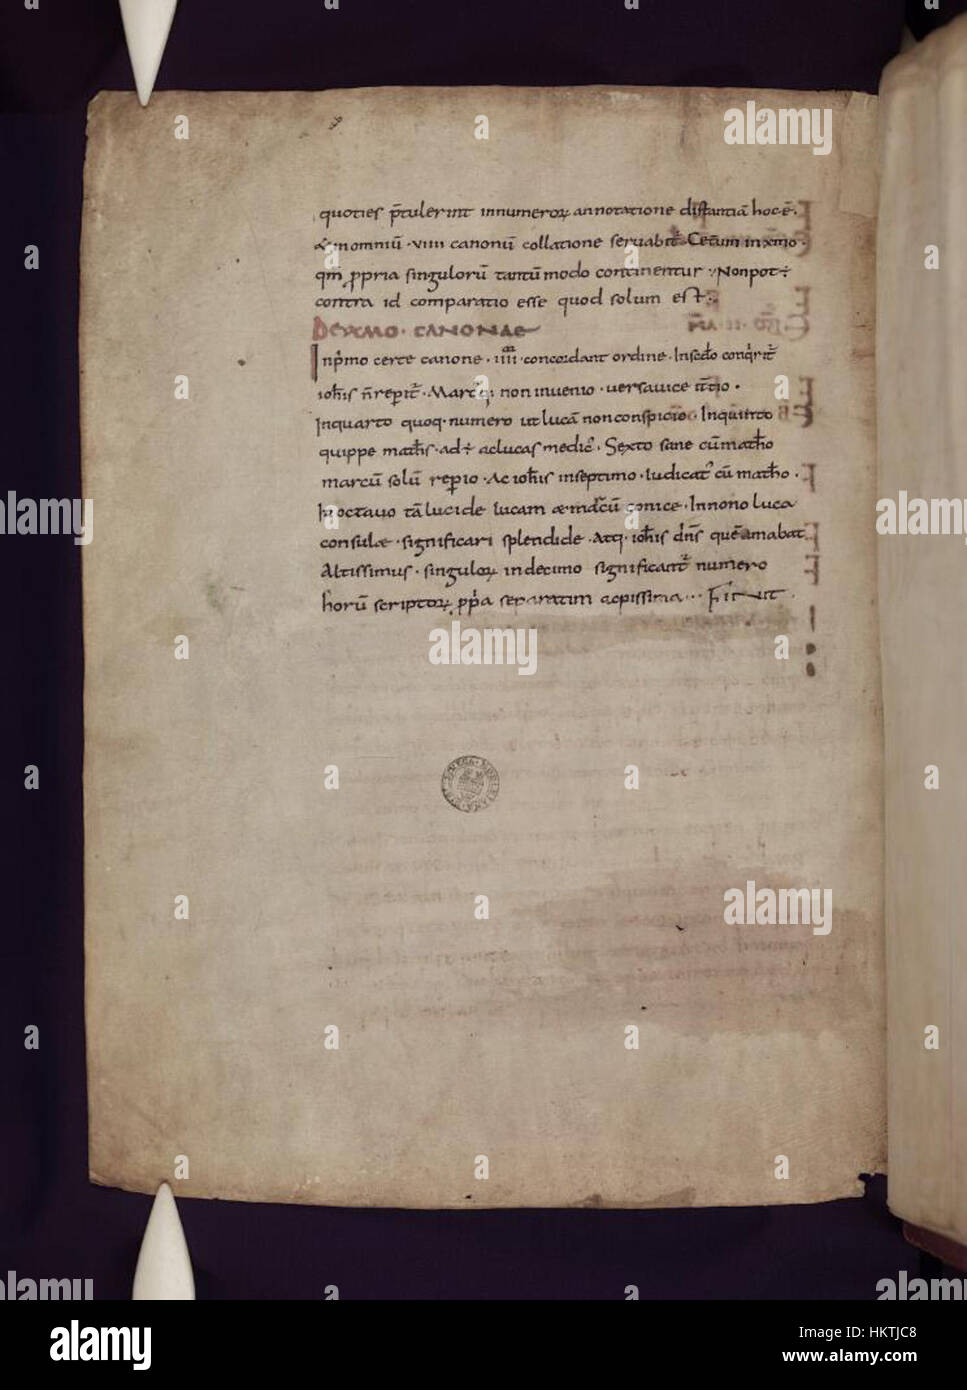 quoties p̄tulerint innumeroꝝ annotatione distantiā hoc ē.
& inomniū · viiii canonū collatione seruabit̄ · Cet̄um inxmo ·
qm̄ ꝓpria singulorū tantūmodo continentur · Nonpot÷
contra id comparatio esse quod solum est.
DEXMO · CANONAE
Inp̄mo certe canone · iiii · concordant ordine · Insec̄do
ioh̄is n̄ reperit̄ · non inuenio · uersauice
Inquarto quoq · numero ut lucā nonconspicio · Inquinto
quippe math̄s · ad÷ aclucas medic᾿ · Sexto sane cūmath̄o
marcū solū reꝑio · Ac ioh̄is inseptimo · Iudicat᾿ cū math̄o ·
Inoctauo tā lucide lucam Innono luca
consulæ · significari splendide · Atq · ioh̄is dn̄s quē amabat
Altissimus · singuloꝝ indecimo significant̄ numero
horū scriptoꝝ separatim acpissima · · · Finit
alamy
a
alamy stock photo
HKTJC8
www.alamy.com